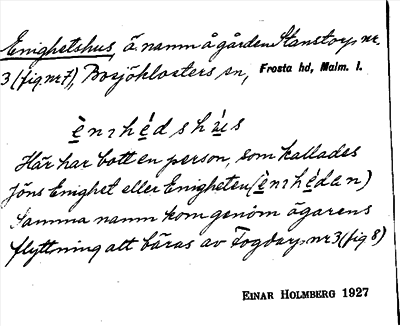 Enighetshus, ä. namn å gården Stanstorp, nr.
3 (fig. nr 7), Bosjöklosters sn, Frosta hd, Malm. l.
è n ı h é d s h ù́ s
Här har bott en person, som kallades
Jöns Enighet eller Enigheten (è n ı h é d a n)
Samma namn kom genom ägarens
flyttning att bäras av Fogdarp, nr 3 (fig 8)
EINAR HOLMBERG 1927